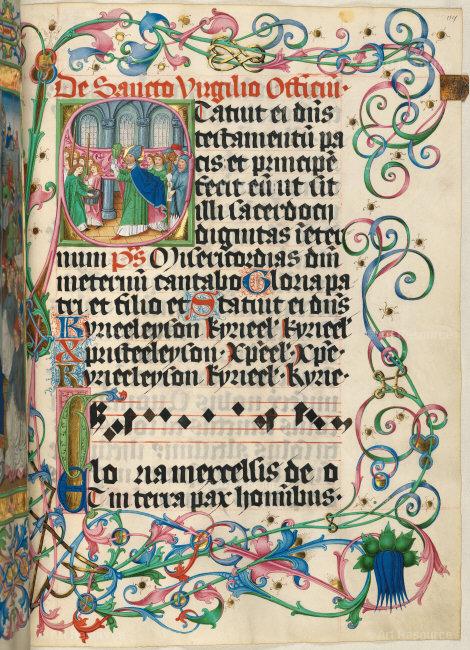 De Sancto Virgilio Officiū.
Statuit ei dn̄s
testamentū pa
cis et principē
fecit eū ut sit
illi sacerdotii
dignitas in eter
num Ps Misericordias dn̄i
in eternū cantabo Gloria pa
tri et filio et Statuit ei dn̄s
Kyrieeleyson kyrieel kyrieel
Xpristeeleyson. Xpēel. Xpē.
Kyrieeleyson kyrieel. kyrie.
Glo ria in excelsis de o
Et in terra pax hominibus.
Art Resource